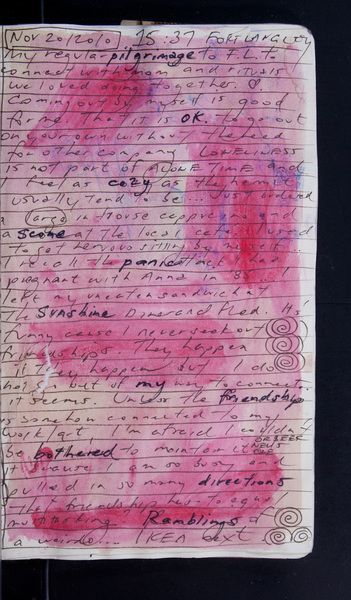 Nov 20/2010 15:37 FORT LANGLEY
My regular pilgrimage to F.L. to
connect with mom and rituals
we loved doing together. ♡
Coming out by myself is good
for me. That it is OK to go out
on your own without the need
for other company. LONELINESS
is not part of ALONE TIME and
I feel as cozy as the hermit
usually tend to be... Just ordered
a large in house cappuccino and
a scone at the local cafe. I used
to get nervous sitting by myself.
I recall the panic attack I had
pregnant with Anna in '88...!
left my uneaten sandwich at
The Sunshine Diner and fled. It's
funny cause I never seek out
friendships. They happen
if they happen but I do
that's but of my way to connect
it seems. Unless the friendships
is somehow connected to my
work/art I'm afraid I couldn't
be bothered to maintain it
OR SEEK
NEW
ONE
'cause I am so busy and
pulled in so many directions
that friendship has to equal
multitasking. Ramblings of
a weirdo... IKEA next